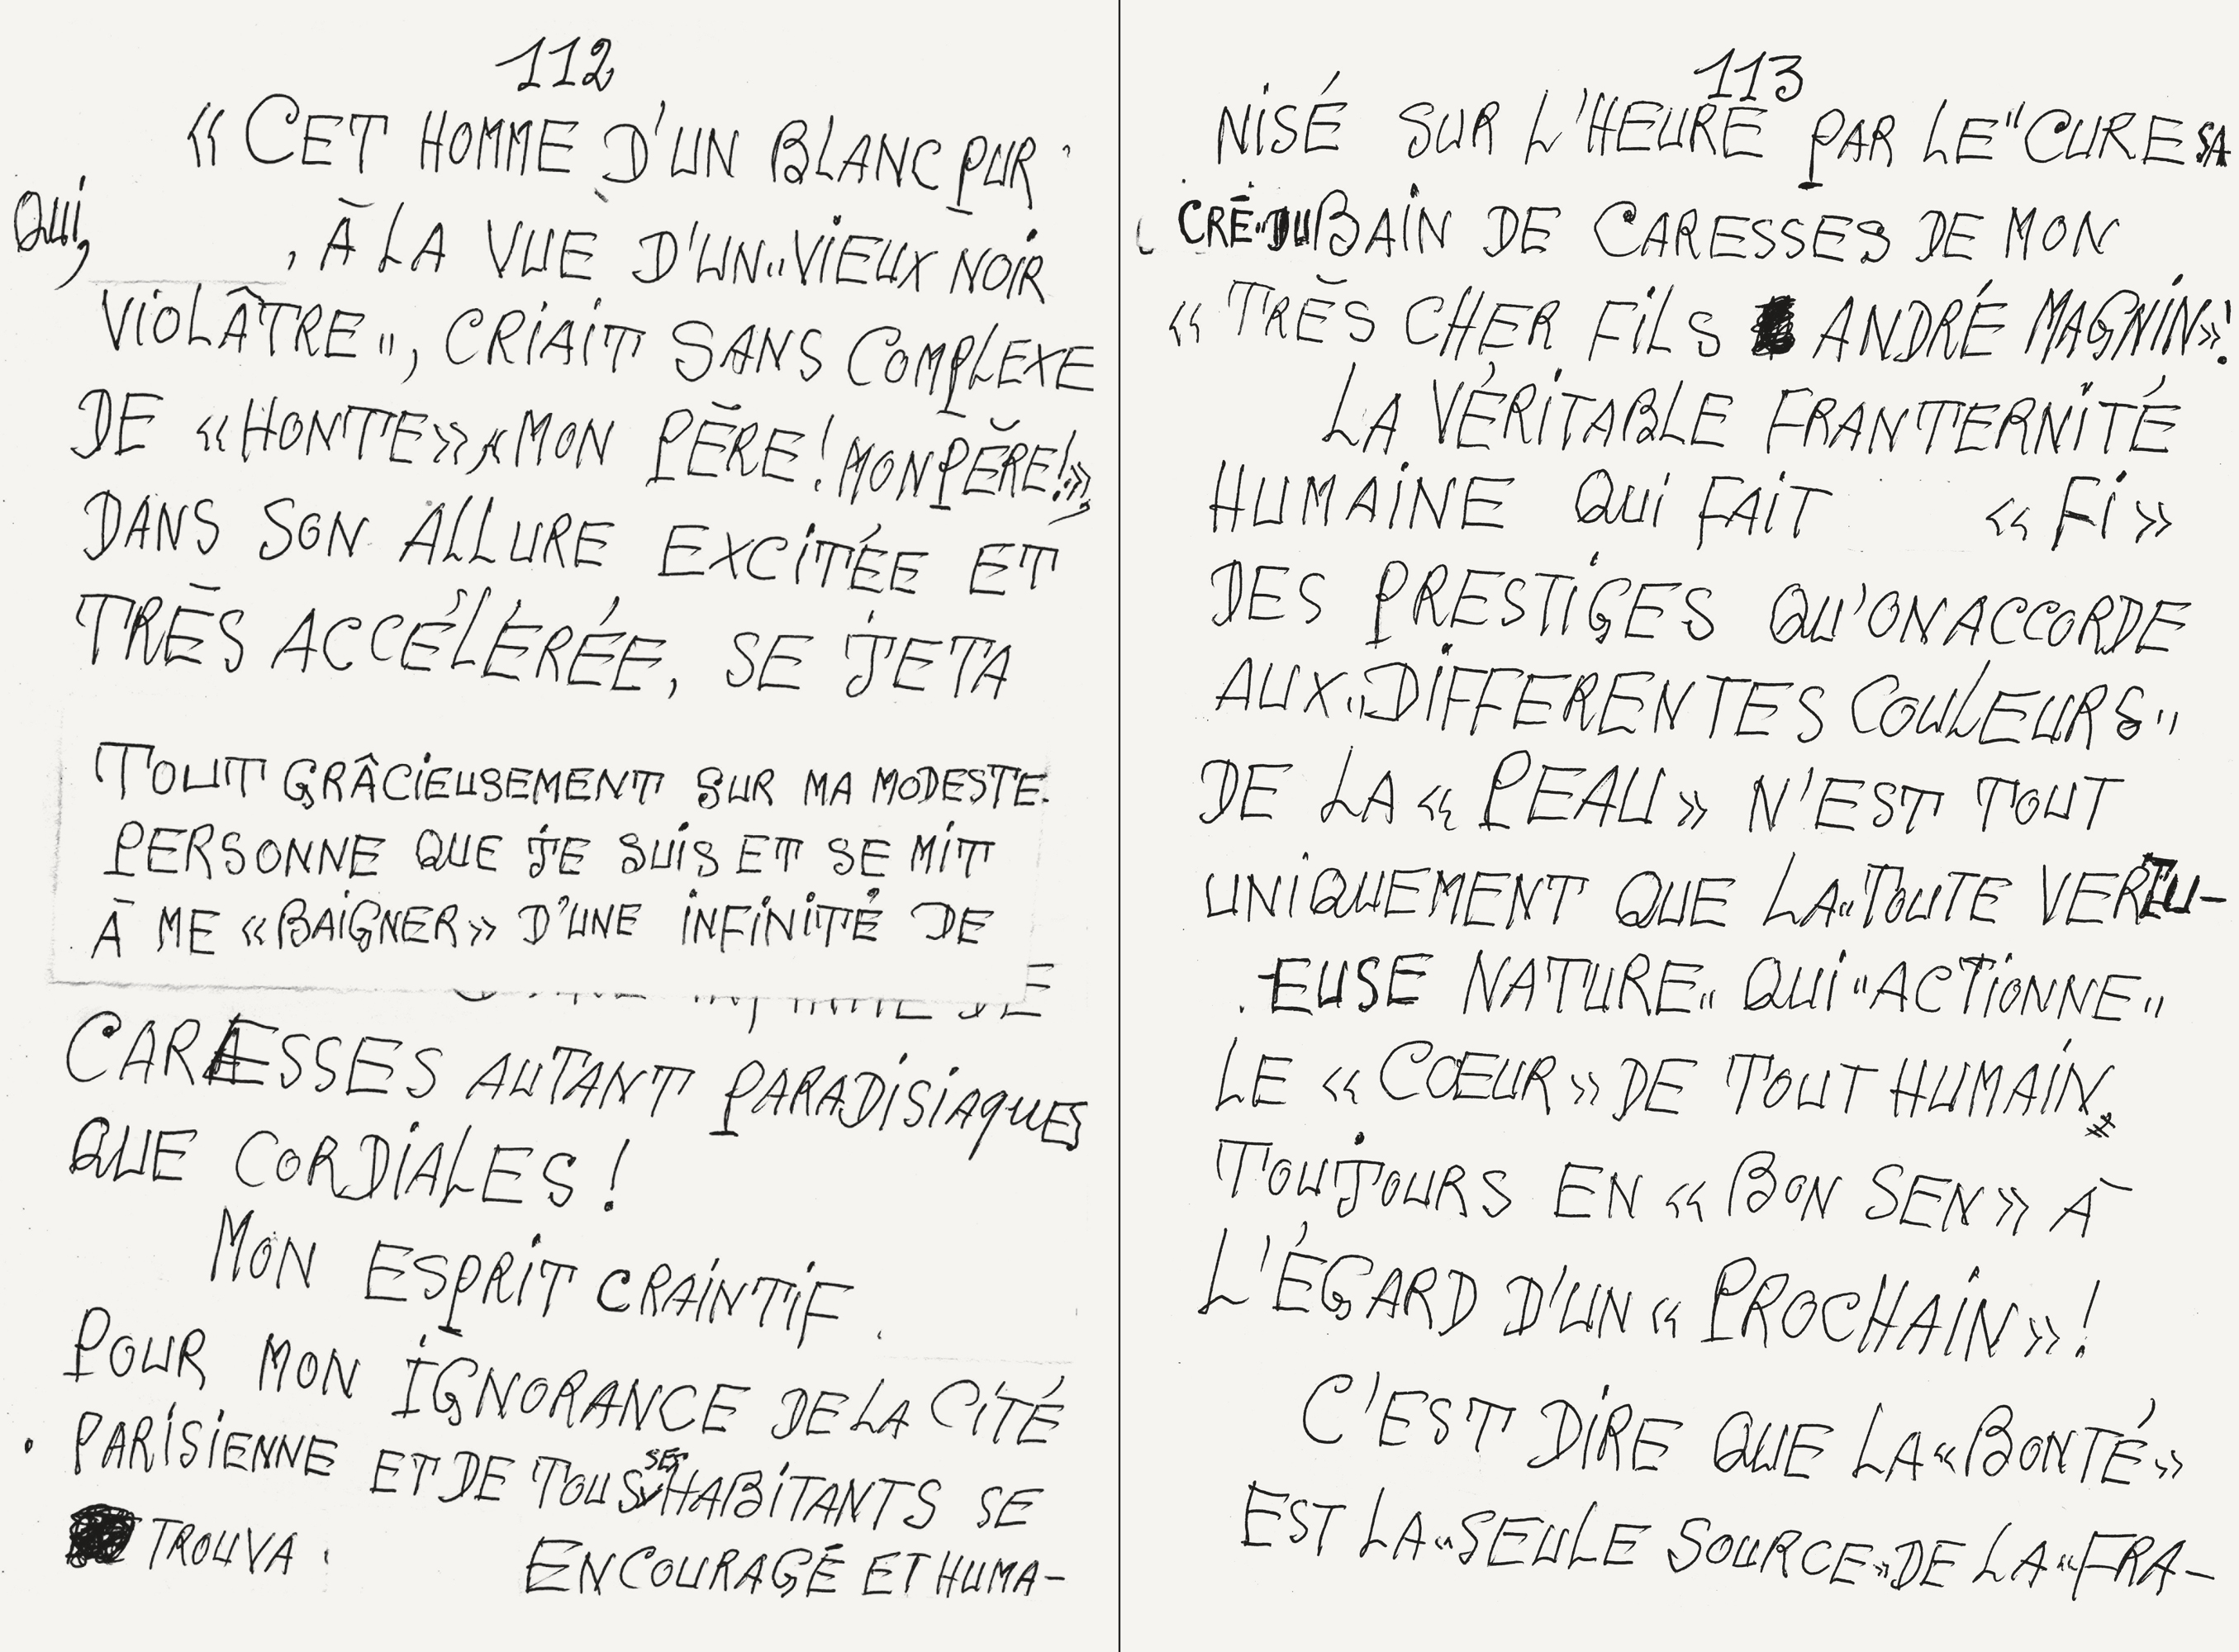 112
« CET HOMME D'UN BLANC PUR
QUI, , À LA VUE D'UN "VIEUX NOIR
VIOLÂTRE", CRIAIT SANS COMPLEXE
DE « HONTE » « MON PÈRE ! MON PÈRE ! »,
DANS SON ALLURE EXCITÉE ET
TRÈS ACCÉLÉRÉE, SE JETA
TOUT GRÂCIEUSEMENT SUR MA MODESTE
PERSONNE QUE JE SUIS ET SE MIT
À ME « BAIGNER » D'UNE INFINITÉ DE
CARESSES AUTANT PARADISIAQUES
QUE CORDIALES !
MON ESPRIT CRAINTIF
POUR MON IGNORANCE DE LA CITÉ
PARISIENNE ET DE TOUS SES HABITANTS SE
TROUVA ENCOURAGÉ ET HUMA-
113
NISÉ SUR L'HEURE PAR LE "CURE SA
CRÉ" DU BAIN DE CARESSES DE MON
« TRÈS CHER FILS ANDRÉ MAGNIN » !
LA VÉRITABLE FRANTERNITÉ
HUMAINE QUI FAIT « FI »
DES PRESTIGES QU'ON ACCORDE
AUX "DIFFERENTES COULEURS"
DE LA « PEAU » N'EST TOUT
UNIQUEMENT QUE LA "TOUTE VERTU-
EUSE NATURE" QUI "ACTIONNE"
LE « CŒUR » DE TOUT HUMAIN
TOUJOURS EN « BON SEN » À
L'ÉGARD D'UN « PROCHAIN » !
C'EST DIRE QUE LA « BONTÉ »
EST LA « SEULE SOURCE » DE LA « FRA-